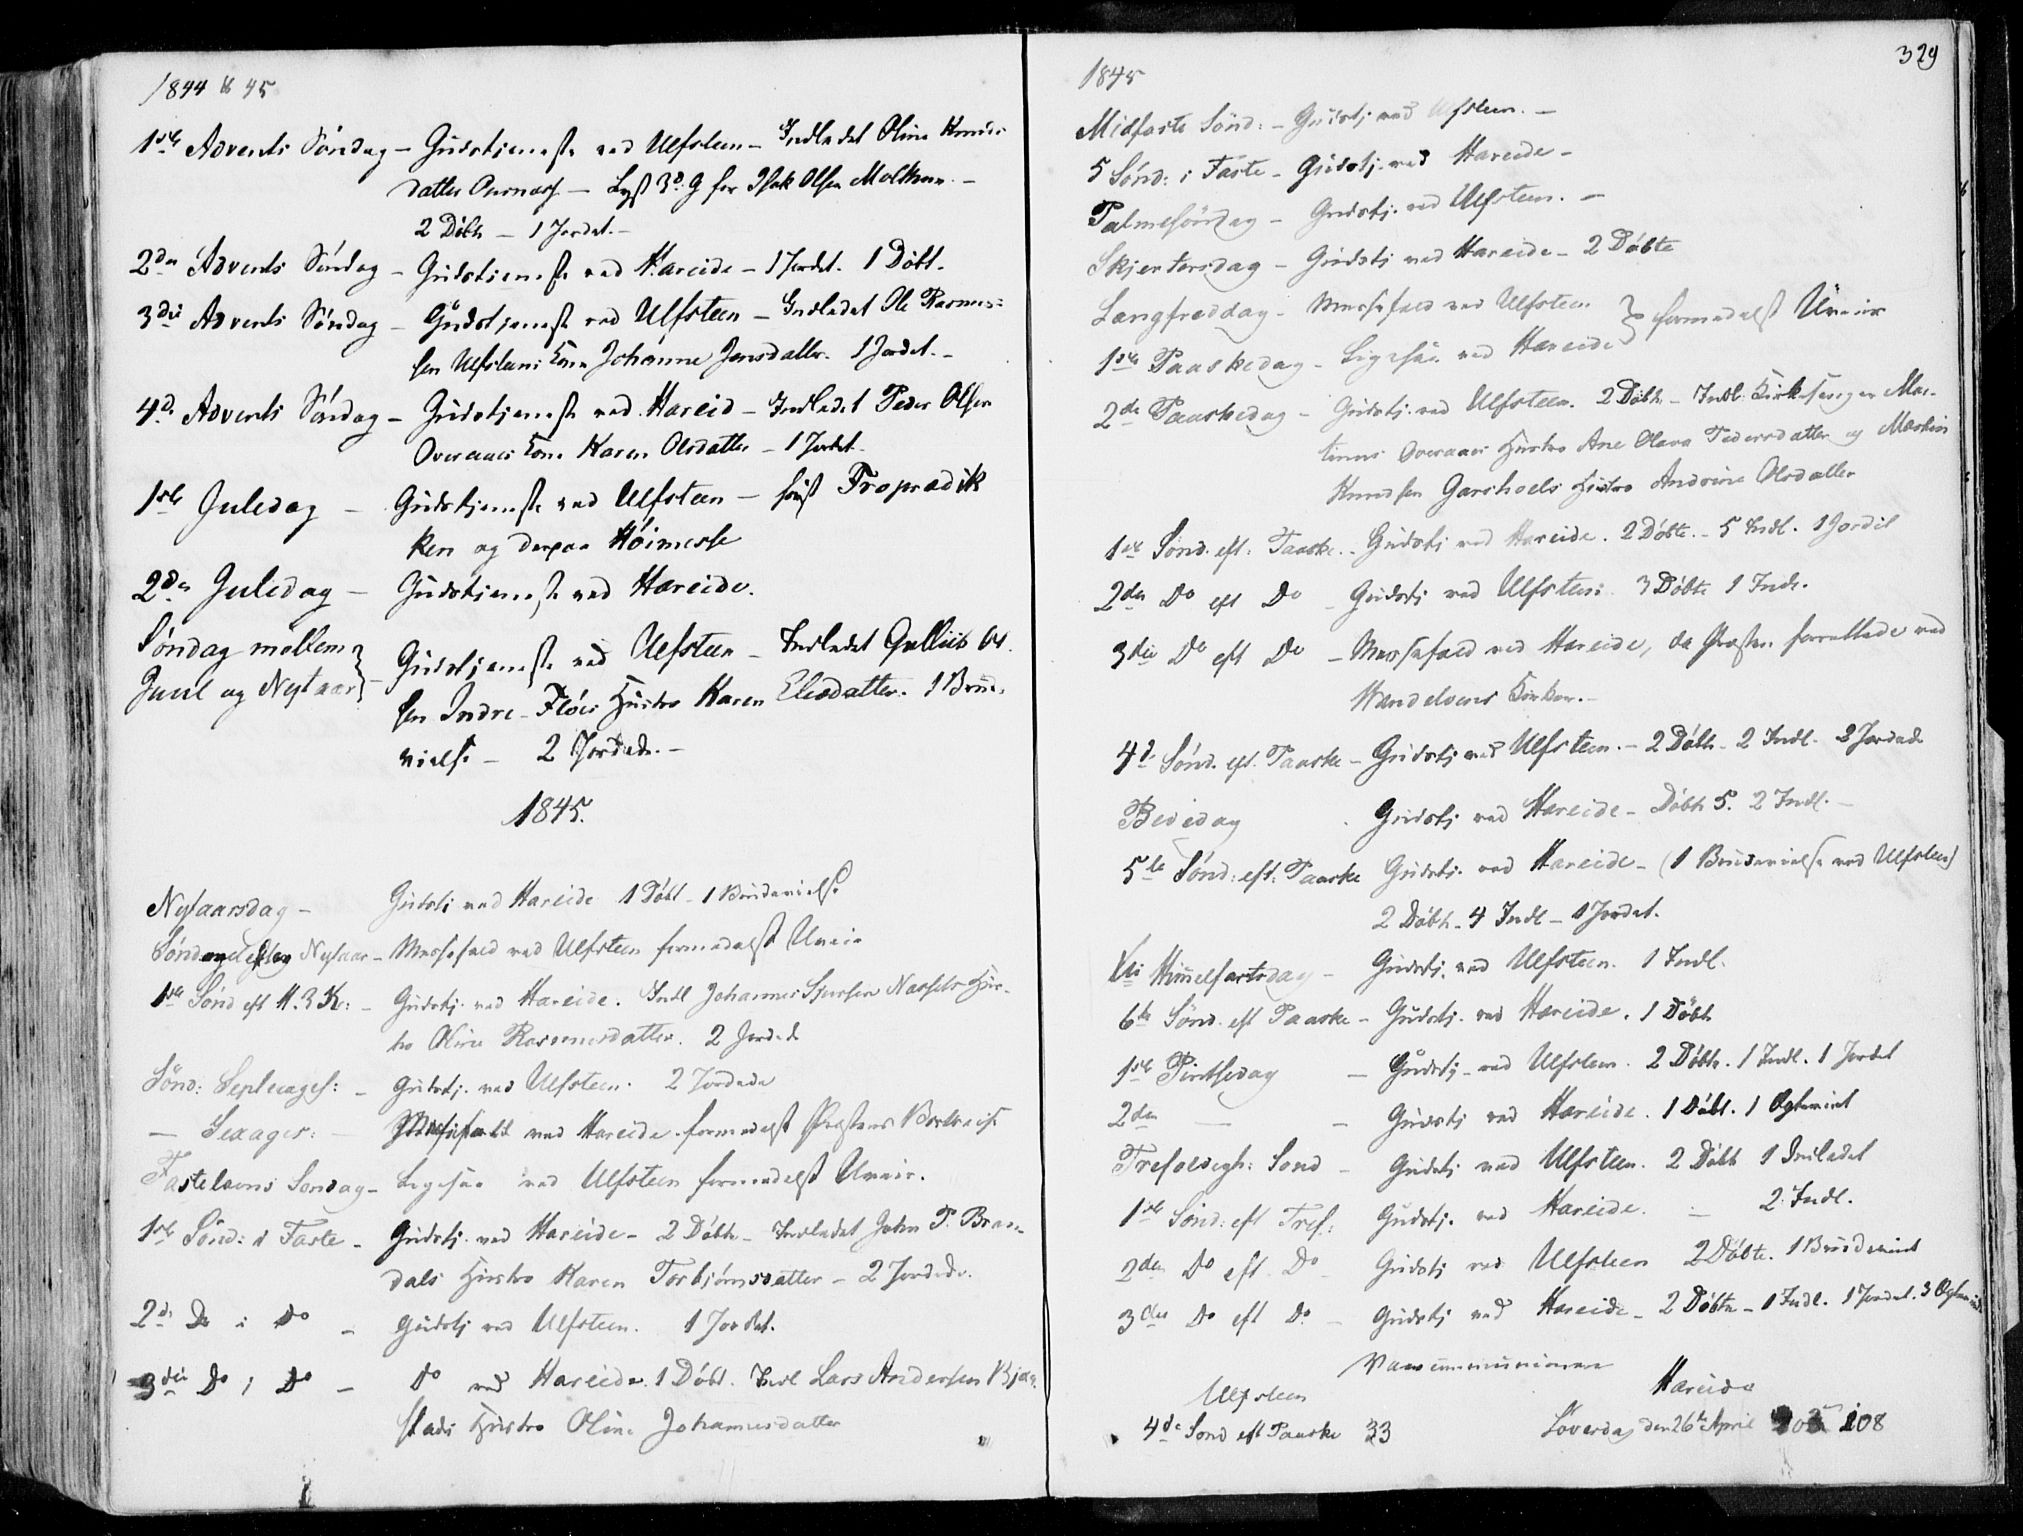 1844 & 45
1ste Advents Søndag – Gudstjeneste ved Ulfsteen – Indledet Oline Knuds-
datter – Lyst 3d: G for Isak Olsen
2 Døbte – 1 Jordet. –
2den Advents Søndag – Gudstjeneste ved Hareide – 1 Jordet. 1 Døbt.
3die Advents Søndag – Gudstjeneste ved Ulfsteen – Indledet Ole Rasmus-
sen Ulfsteens Kone Johanne Jensdatter. 1 Jordet. –
4de Advents Søndag – Gudstjeneste ved Hareid – Indledet Peder Olsen
Overaaes Kone Karen Olsdatter – 1 Jordet
1ste Juledag – Gudstjeneste ved Ulfsteen – først Froprædik
ken og derpaa Høimesse
2den Juledag – Gudstjeneste ved Hareide.
Søndag mellem
Juul og Nytaar } – Gudstjeneste ved Ulfsteen – Indledet Ol.
sen Indre-Fløes Hustro Karen Eliasdatter. 1 Brude-
vielse – 2 Jordede. –
1845.
Nytaarsdag – Gudstj ved Hareide 1 Døbt – 1 Brudevielse
Søndag efter Nytaar – Messefald ved Ulfsteen formedelst Uveir
1ste Sønd eft H. 3 K: – Gudstj. ved Hareide. Indl Johannes Hus-
tro Oline Rasmusdatter. 2 Jordede
Sønd: Septuages: – Gudstj. ved Ulfsteen. 2 Jordede
— Sexages: – Messefald ved Hareide formedelst Præstens
Fastelavns Søndag – Ligesaa ved Ulfsteen formedelst Uveir.
1ste Sønd: i Faste – Gudstj. ved Hareide – 2 Døbte – Indledet John P. Bran-
dals Hustro Karen Torbjørnsdatter – 2 Jordede.
2d: Do i Do – Gudstj ved Ulfsteen. 1 Jordet.
3die Do i Do – Do ved Hareide. 1 Døbt. Indl Lars Andersen Bjør
stads Hustro Oline Johannesdatter
329
1845
Midfaste Sønd: – Gudstj. ved Ulfsteen. –
5 Sønd: i Faste – Gudstj. ved Hareide –
Palmesøndag – Gudstj. ved Ulfsteen. –
Skjertorsdag – Gudstj ved Hareide – 2 Døbte
Langfredag – Messefald ved Ulfsteen } formedelst Uveir
1ste Paaskedag – Ligesaa ved Hareide
2de Paaskedag – Gudstj. ved Ulfsteen. 2 Døbte – Indl: Kirkesanger Mar-
tinus Overaaes Hustro Ane Olava Pedersdatter og Martin
Knudsen Garshols Hustro Andrine Olsdatter
1ste Sønd. eft: Paaske. – Gudstj ved Hareide. 2 Døbte. – 5 Indl. 1 Jordet
2den Do eft Do – Gudstj ved Ulfsteen: 3 Døbte 1 Indl.
3die Do eft Do – Messefald ved Hareide, da Præsten forrettede ved
Vandelvens Kirke. –
4d Sønd. eft. Paaske – Gudstj ved Ulfsteen. – 2 Døbte – 2 Indl. 2 Jordede
Bededag . Gudstj ved Hareide – Døbte 5. 2 Indl. –
5te Sønd: eft: Paaske Gudstj. ved Hareide – (1 Brudevielse ved Ulfsteen)
2 Døbte – 4 Indl – 1 Jordet.
Xti Himelfartsdag – Gudstj. ved Ulfsteen. 1 Indl.
6te Sønd. eft Paaske – Gudstj. ved Hareide. 1 Døbt
1ste Pintsedag – Gudstj – ved Ulfsteen. 2 Døbte. 1 Indl. 1 Jordet
2den — – Gudstj ved Hareide. 1 Døbt. 1 Egteviet
Trefoldigh: Sønd – Gudstj ved Ulfsteen. 2 Døbte 1 Indledet
1ste Sønd: eft Tref: Gudstj. ved Hareide. – 2 Indl.
2den Do eft. Do – Gudstj ved Ulfsteen 2 Døbte. 1 Brudeviet
3die Do eft Do – Gudstj ved Hareide – 2 Døbte – 1 Indl. 1 Jordet. 3
Ulfsteen Hareide
4de Sønd eft Paaske 33 Løverdag den 26te April 108